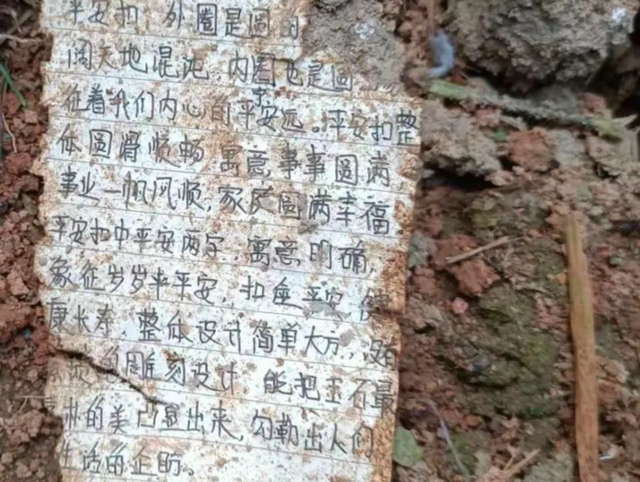 平安扣 外圈是圆的
阔天地混沌,内圈也是圆
征着我们内心的平安远。平安扣整
体圆滑顺畅 寓意,事事圆满,
事业一帆风顺,家庭圆满幸福.
平安扣中平安两字,寓意明确,
象征岁岁平平安,扣 平安 健
康长寿,整体设计简单大方,没
的雕刻设计 能把玉石最
的美凸显出来,勾勒出人们
生活的企盼。